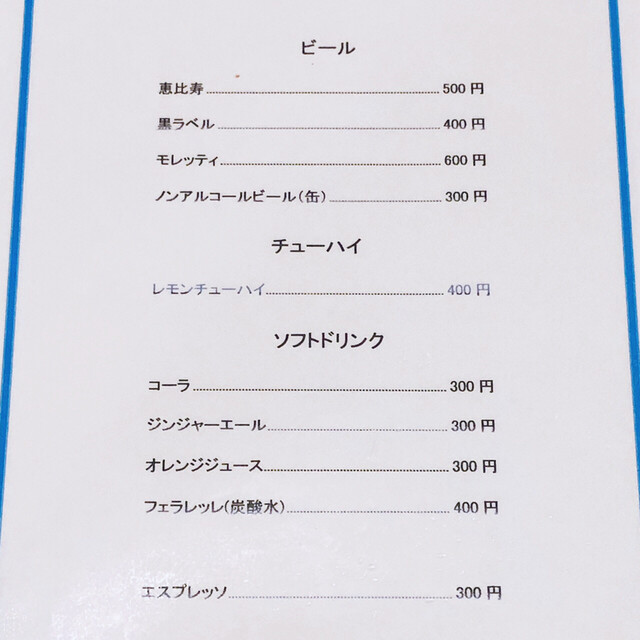 ビール
恵比寿 500 円
黒ラベル 400 円
モレッティ 600 円
ノンアルコールビール(缶) 300 円
チューハイ
レモンチューハイ 400 円
ソフトドリンク
コーラ 300 円
ジンジャーエール 300 円
オレンジジュース 300 円
フェラレッレ(炭酸水) 400 円
エスプレッソ 300 円